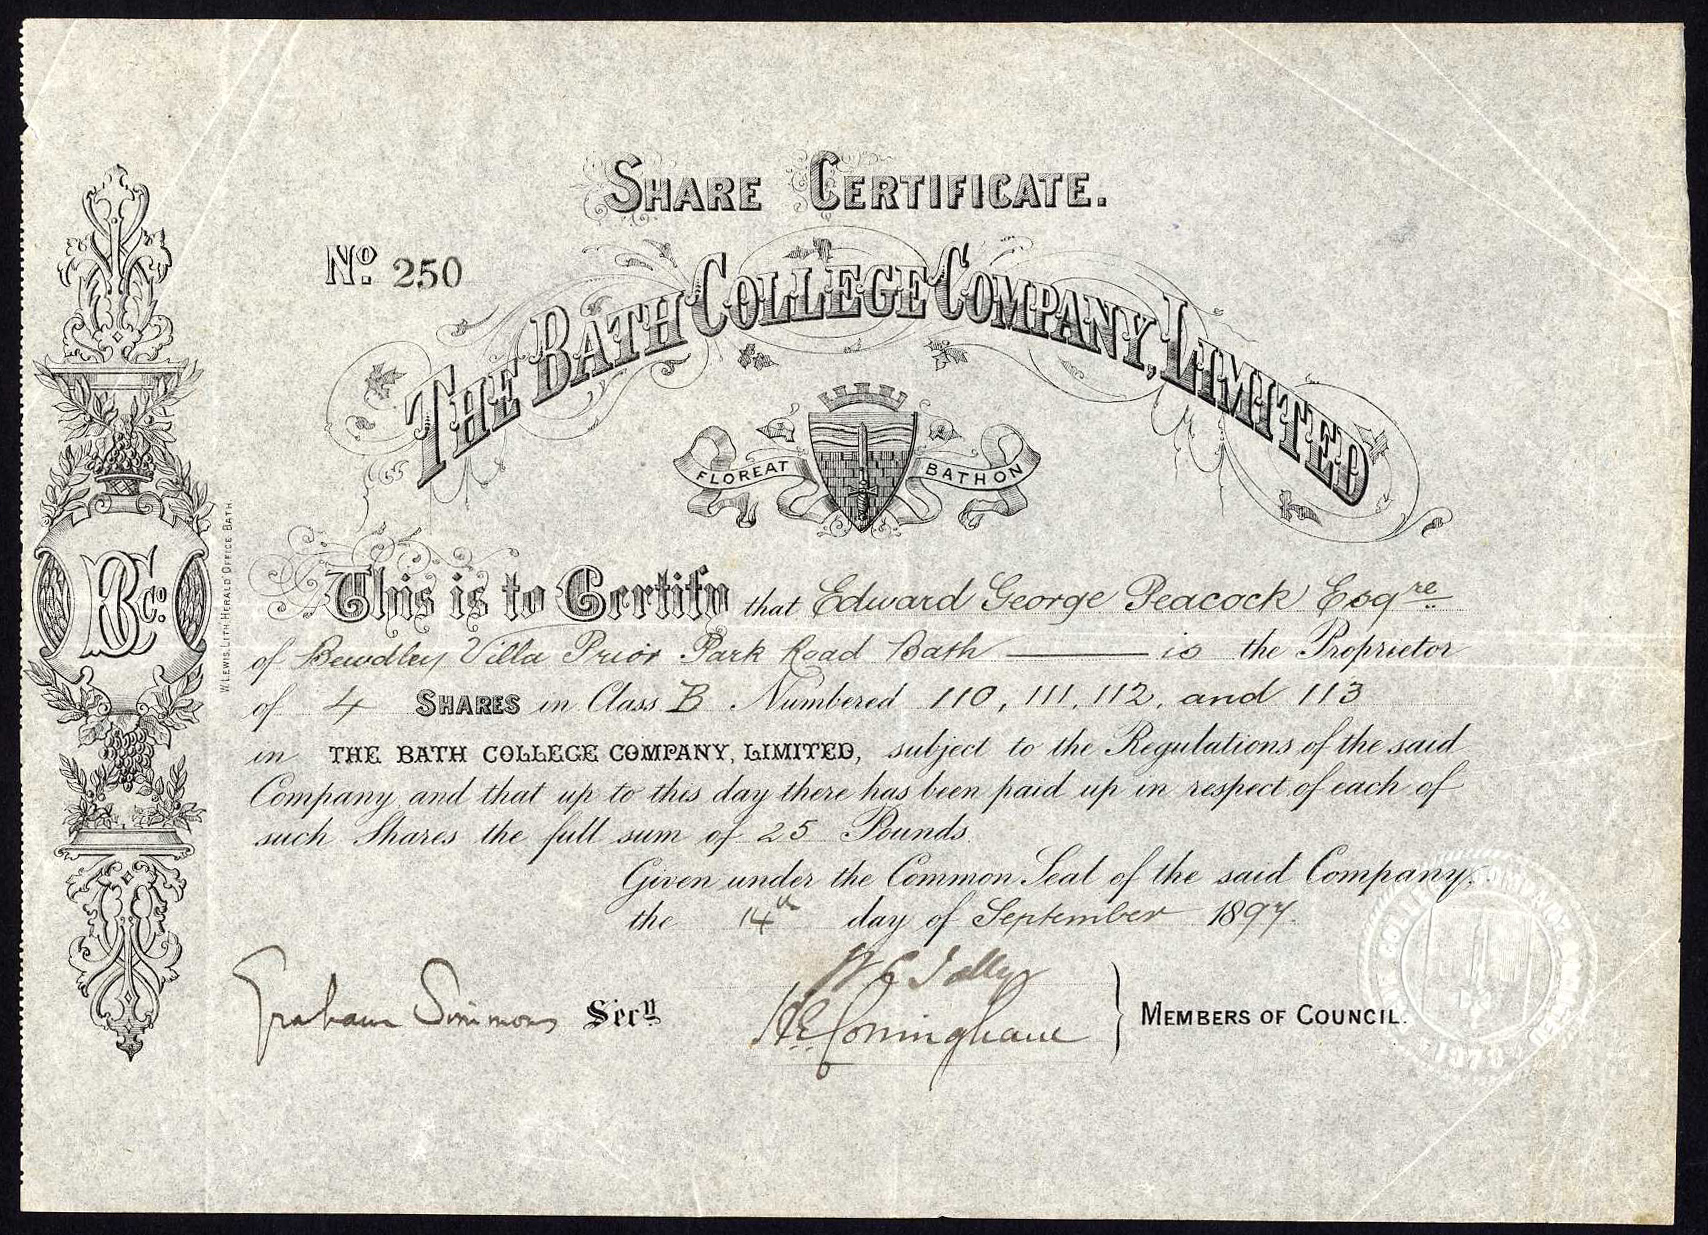 SHARE CERTIFICATE.
No. 250
THE BATH COLLEGE COMPANY, LIMITED
FLOREAT BATHON
This is to Certify that Edward George Peacock Esqre.
of Bewdley Villa Prior Park Road Bath ——— is the Proprietor
of 4 SHARES in Class B Numbered 110, 111, 112, and 113
in THE BATH COLLEGE COMPANY, LIMITED, subject to the Regulations of the said
Company and that up to this day there has been paid up in respect of each of
such Shares the full sum of 25 Pounds.
Given under the Common Seal of the said Company,
the 14th day of September 1897.
Graham Simmons Secy
H.E. Coningham
MEMBERS OF COUNCIL.
BC Co.
W. LEWIS, LITH HERALD OFFICE BATH